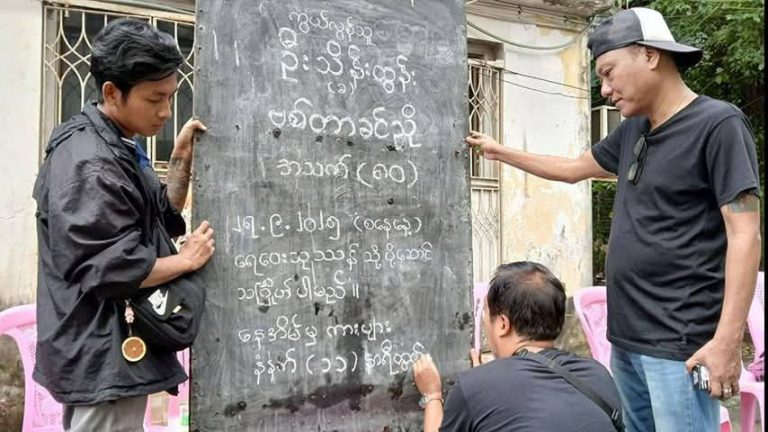 ကွယ်လွန်သူ
ဦးသိန်းထွန်း (ခ)
ဗစ်တာခင်ညို
အသက် (၈၀)
၂၇.၉.၂၀၂၅ (စနေနေ့)
ရေဝေးသုဿန်သို့ ပို့ဆောင်
သင်္ဂြိုဟ်ပါမည်။
နေအိမ်မှ ကားများ
နံနက် (၁၁) နာရီထွက်